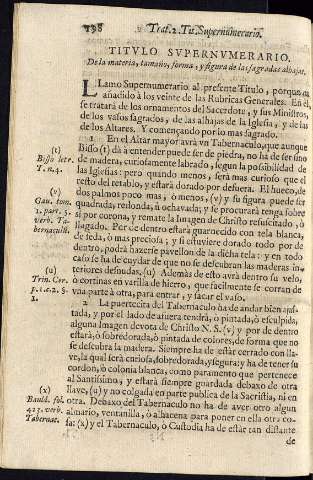 198 Trat. 2. Tit. Supernumerario.
TITULO SUPERNUMERARIO.
De la materia, tamaño, forma, y figura de las sagradas alhajas.
LLamo Supernumerario al presente Titulo, porque va
añadido à los veinte de las Rubricas Generales. En èl,
se tratarà de los ornamentos del Sacerdote, y sus Ministros,
de los vasos sagrados, de las alhajas de la Iglesia, y de las
de los Altares. Y començando por lo mas sagrado.
1 En el Altar mayor avrà vn Tabernaculo, que aunque
(t) Bisso (t) dà à entender puede ser de piedra, no ha de ser sino
Bisso letr. de madera, curiosamente labrado, segun la possibilidad de
T. n. 4. las Iglesias: pero quando menos, serà mas curioso que el
resto del retablo, y estarà dorado por defuera. El hueco, de
(v) dos palmos poco mas, ò menos, (v) y su figura puede ser
Gau. tom. quadrada, redonda, ù ochavada; y se procurarà tenga sobre
1. part. 5. sì por corona, y remate la Imagen de Christo resucitado, ò
verb. Ta- llagado. Por de dentro estarà guarnecido con tela blanca
bernaculũ. de seda, ò mas preciosa; y si estuviere dorado todo por de
dentro, podrà hazerse pavellon de la dicha tela: y en todo
caso se ha de cuydar de que no se descubran las maderas in-
(u) teriores desnudas. (u) Ademàs de esto avrà dentro su velo,
Trin. Cor. ò cortinas en varilla de hierro, que facilmente se corran de
vna parte à otra, para entrar, y sacar el vaso.
2 La puertecita del Tabernaculo ha de andar bien ajus-
tada, y por el lado de afuera tendrà, ò pintada, ò esculpida,
alguna Imagen devota de Christo N. S. (v) y por de dentro
estarà, ò sobredorada, ò pintada de colores, de forma que no
se descubra la madera. Siempre ha de estar cerrado con lla-
ve, la qual serà curiosa, sobredorada, y segura; y ha de tener su
cordon, ò colonia blanca, como paramento que pertenece
al Santissimo, y estarà siempre guardada debaxo de otra
(x) llave, (u) y no colgada en parte publica de la Sacristia, ni en
Bauld. fol. otra. Debaxo del Tabernaculo no ha de aver otro algun
423. verb. almario, ventanilla, ò alhacena para poner en ella otra co-
Tabernat. sa: (x) y el Tabernaculo, ò Custodia ha de estàr tan distante
de